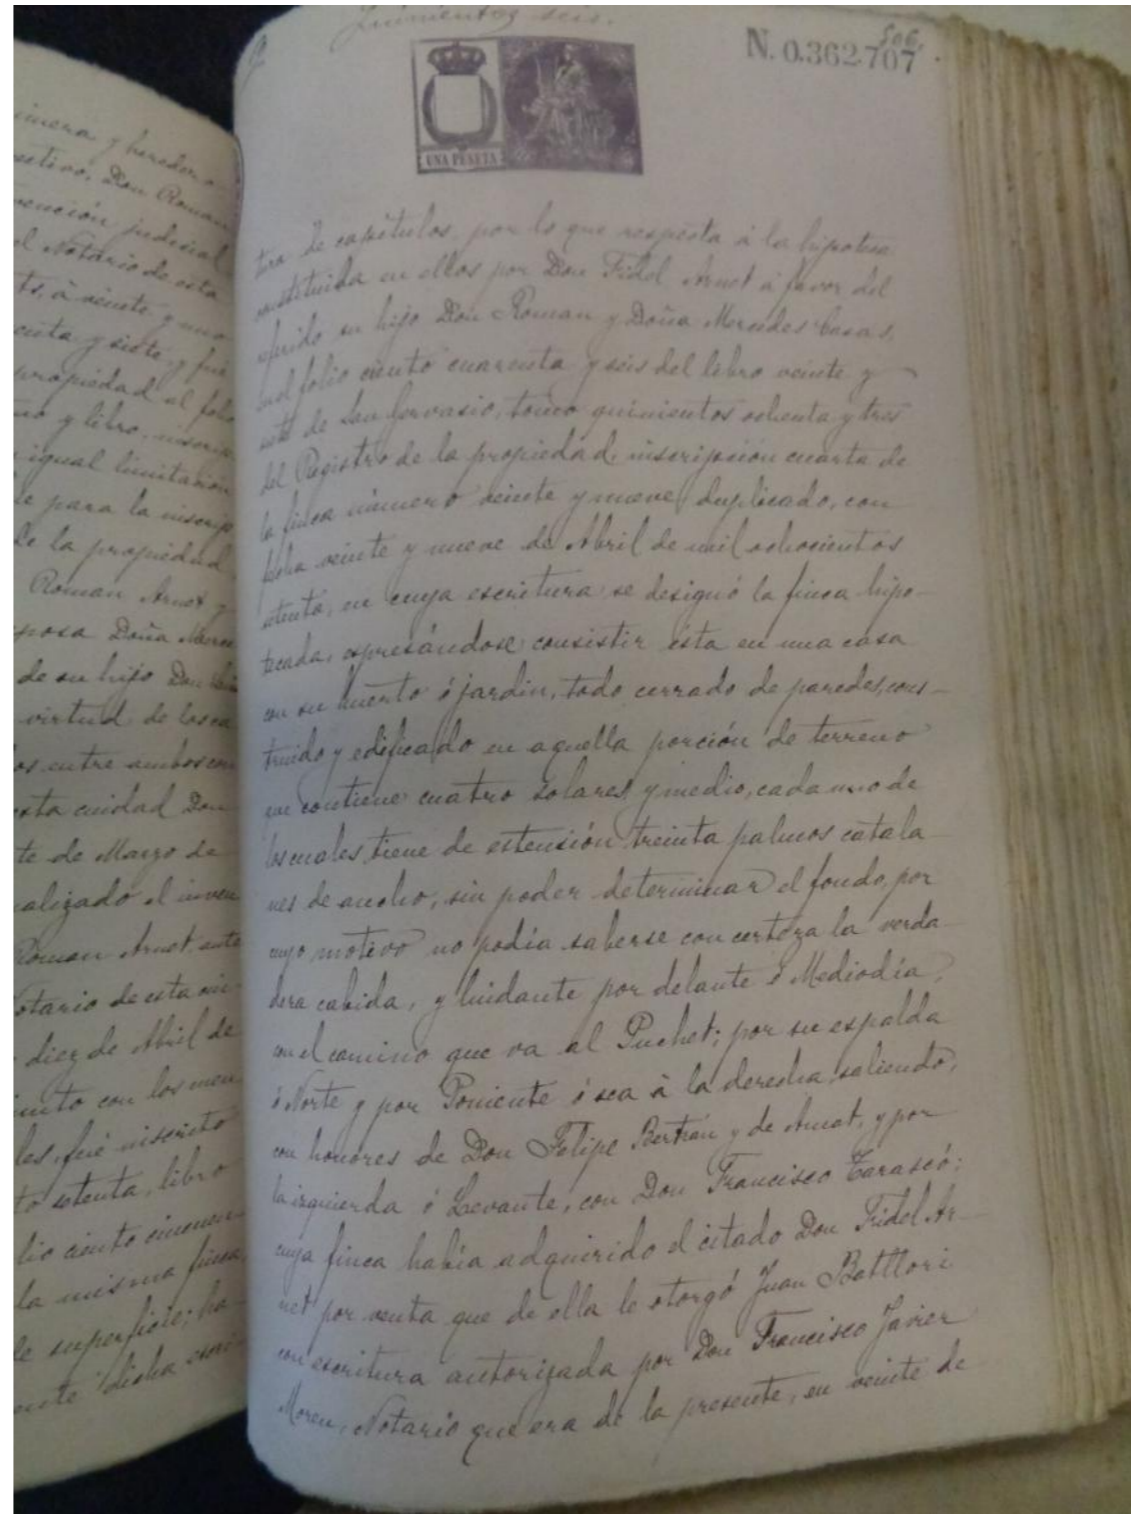 imera y heredero
Don Roman
vención judicial
el Notario de esta
ts, á veinte y uno
enta y siete y fué
propiedad al folio
mo y libro, inscrip
igual limitación
te para la inscrip
de la propiedad
Roman Arnet y
sposa Doña Merce
de su hijo Don
virtud de los ca
os entre ambos con
esta ciudad Don
te de Marzo de
ealizado el inven
Roman Arnet ante
otario de esta ciu
diez de Abril de
junto con los men
les, fué inscrito
to setenta, libro
lio ciento cincuen
la misma finca,
de superficie; ha
ente dicha escri
Quinientos seis.
506.
N. 0.362.707
UNA PESETA
tura de capítulos, por lo que respecta á la hipoteca
constituida en ellos por Don Fidel Arnet á favor del
referido su hijo Don Roman y Doña Mercedes Casas,
al folio ciento cuarenta y seis del libro veinte y
siete de San Gervasio, tomo quinientos ochenta y tres
del Registro de la propiedad, inscripción cuarta de
la finca número veinte y nueve duplicado, con
fecha veinte y nueve de Abril de mil ochocientos
setenta, en cuya escritura se designó la finca hipo-
tecada, espresándose consistir ésta en una casa
con su huerto ó jardin, todo cerrado de paredes, cons-
truido y edificado en aquella porción de terreno
que contiene cuatro solares y medio, cada uno de
los cuales tiene de estensión treinta palmos catala
nes de ancho, sin poder determinar el fondo, por
cuyo motivo no podía saberse con certeza la verda
dera cabida, y lindante por delante ó Mediodía,
con el camino que va al Puchet; por su espalda
ó Norte y por Poniente ó sea á la derecha saliendo,
con honores de Don Felipe Bertran y de Amat, y por
la izquierda ó Levante, con Don Francisco Tarascó;
cuya finca había adquirido el citado Don Fidel Ar-
net por venta que de ella le otorgó Juan Batllori
con escritura autorizada por Don Francisco Javier
Moreu, Notario que era de la presente, en veinte de